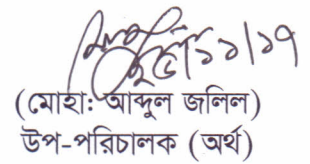 (মোহা: আব্দুল জলিল)
উপ-পরিচালক (অর্থ)